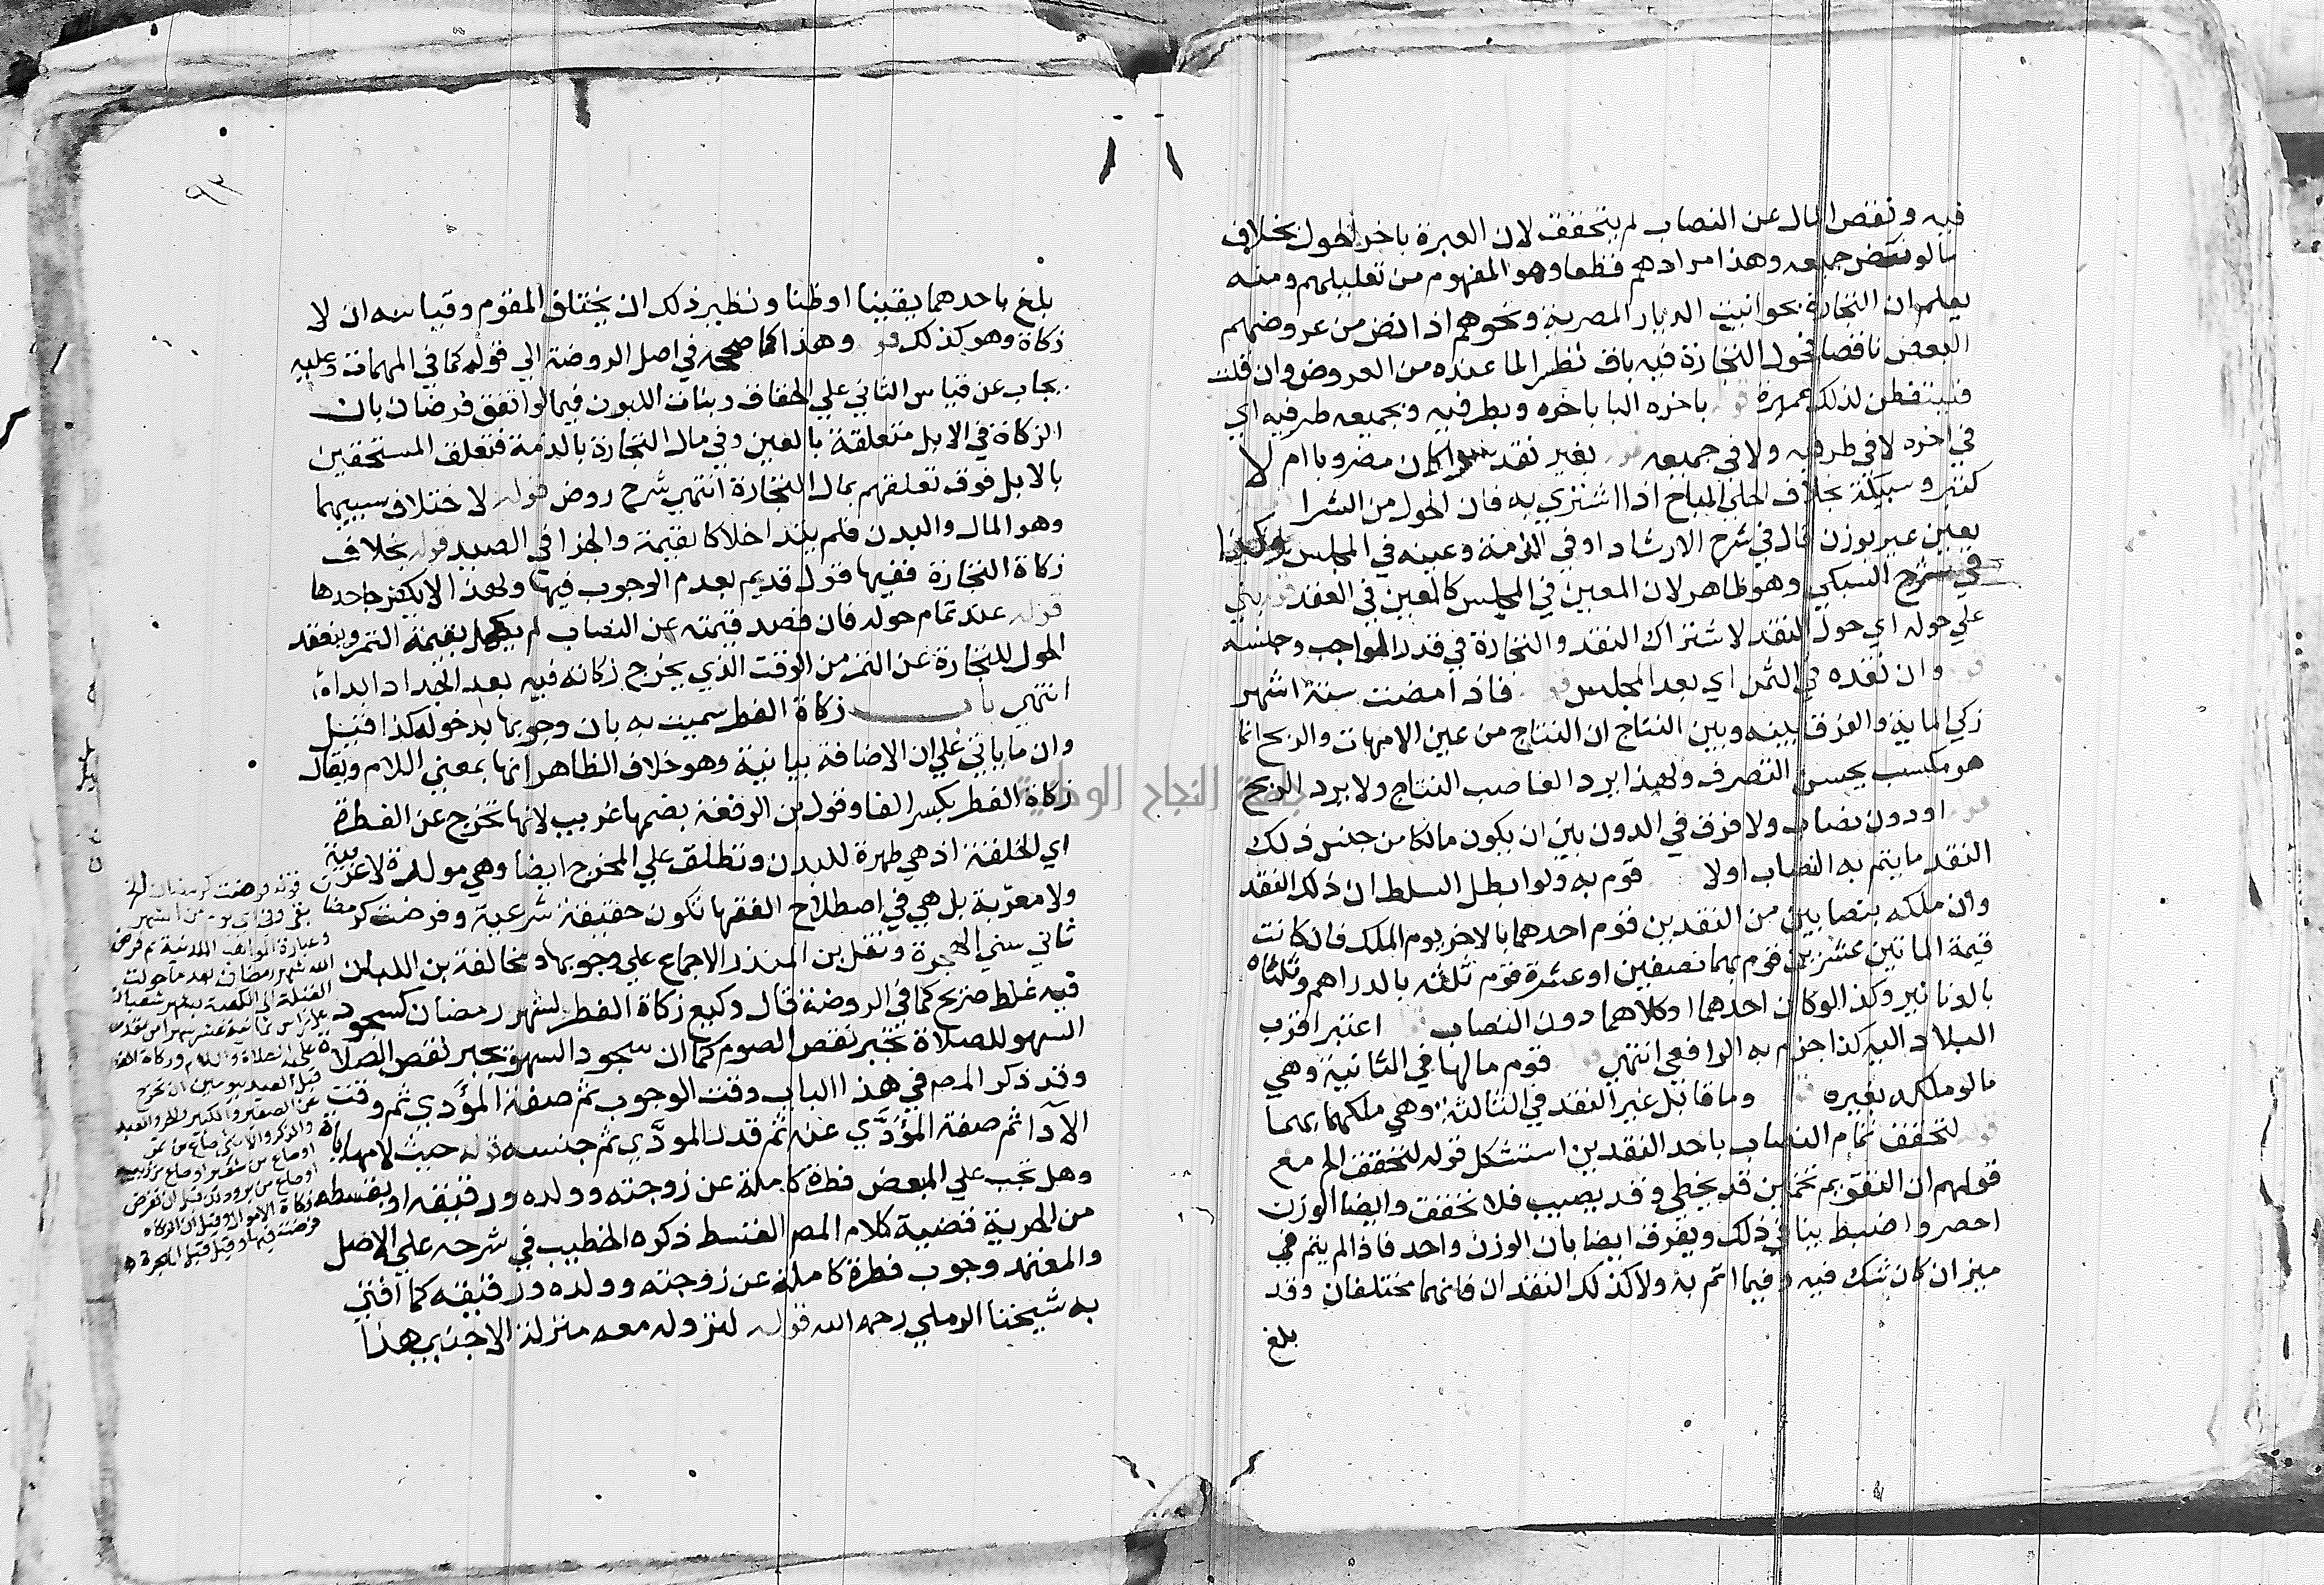 فيه ونقص المال عن النصاب لم يتحقق لان العبرة باخر الحول بخلاف
ما لو نض جميعه وهذا مرادهم قطعا وهو المفهوم من تعليلهم ومنه
يعلم ان التجارة بحوانيت الديار المصرية ونحوهم اذا نض من عروضهم
البعض ناقصا فحول التجارة فيه باق نظرا لما عنده من العروض وان قلت
فليتفطن لذلك عميرة قوله باخره البا باخره وبطرفيه وبجميعه ظرفيه اي
في اخره لا في طرفيه ولا في جميعه قوله بغير نقد سوا كان مضروبا ام لا
كتبر وسبيكة بخلاف الحلي المباح اذا اشتري به فان الحول من الشرا
بعين عبر بوزن قال في شرح الارشاد او في الذمة وعينه في المجلس وكذا
في شرح السبكي وهو ظاهر لان المعين في المجلس كالمعين في العقد قوله بني
علي حوله اي حول النقد لاشتراك النقد والتجارة في قدر الواجب وجنسه
قوله وان نقده في الثمن اي بعد المجلس قوله فاذا مضت ستة اشهر
زكي الماية والفرق بينه وبين النتاج ان النتاج من عين الامهات والربح انما
هو مكسب بحسن التصرف ولهذا يرد الغاصب النتاج ولا يرد الربح
قوله او دون نصاب ولا فرق في الدون بين ان يكون مالكا من جنس ذلك
النقد ما يتم به النصاب اولا قوم به ولو ابطل السلطان ذلك النقد
وان ملكه بنصابين من النقدين قوم احدهما بالاخر يوم الملك فان كانت
قيمة المائتين عشرين قوم بهما نصفين او عشرة قوم ثلثه بالدراهم وثلثاه
بالدنانير وكذا لو كان احدهما او كلاهما دون النصاب اعتبر اقرب
البلاد اليه كذا جزم به الرافعي انتهي قوله قوم مالها في الثانية وهي
ما لو ملكه بغيره وما قابل غير النقد في الثالثة وهي ملكهما بهما
قوله لتحقق تمام النصاب باحد النقدين استشكل قوله لتحقق الم مع
قولهم ان التقويم تخمين قد يخطي وقد يصيب فلا تحقق وايضا الوزن
احصر واضبط بينا في ذلك ويفرق ايضا بان الوزن واحد فاذا لم يتم في
ميزان كان شك فيه وفيما اتم به ولا كذلك النقدان فانهما مختلفان وقد
بلغ
٩٣
بلغ باحدهما يقينا او ظنا ونظير ذلك ان يختلف المقوم وقياسه ان لا
زكاة وهو كذلك قوله وهذا كما صححه في اصل الروضة الي قوله كما في المهمات وعليه
يجاب عن قياس الثاني علي الحقاق وبنات اللبون فيما لو اتفق فرضان بان
الزكاة في الابل متعلقة بالعين وفي مال التجارة بالذمة فتعلق المستحقين
بالابل فوق تعلقهم بمال التجارة انتهي شرح روض قوله لاختلاف سببيهما
وهو المال والبدن فلم يتداخلا كالقيمة والجزا في الصيد قوله بخلاف
زكاة التجارة ففيها قول قديم بعدم الوجوب فيها ولهذا لا يكفر جاحدها
قوله عند تمام حوله فان قصد قيمته عن النصاب لم يكمل بقيمة الثمر وينعقد
الحول للتجارة عن الثمر من الوقت الذي يخرج زكاته فيه بعد الجداد ابدا
انتهي باب زكاة الفطر سميت به بان وجوبها بدخوله كذا قيل
وان ما ياتي علي ان الاضافة بيانية وهو خلاف الظاهر انها بمعني اللام ويقال
زكاة الفطر بكسر الفا وقول بن الرفعة بضمها غريب لانها تخرج عن الفطرة
اي الخلقة اذ هي طهرة للبدن وتطلق علي المخرج ايضا وهي مولدة لا عربية
ولا معربة بل هي في اصطلاح الفقها تكون حقيقة شرعية وفرضت كرمضان
ثاني سني الهجرة ونقل بن المنذر الاجماع علي وجوبها ومخالفة بن اللبان
فيه غلط صريح كما في الروضة قال وكيع زكاة الفطر لشهر رمضان كسجود
السهو للصلاة تجبر نقص الصوم كما ان سجود السهو يجبر نقص الصلاة
وقد ذكر المص في هذا الباب وقت الوجوب ثم صفة المؤدي ثم وقت
الادا ثم صفة المؤدي عنه ثم قدر المودي ثم جنسه قوله حيث لا مهاياة
وهل تجب علي المبعض فطرة كاملة عن زوجته وولده ورقيقه او بقسطه
من الحرية قضية كلام المص القسط ذكره الخطيب في شرحه علي الاصل
والمعتمد وجوب فطرة كاملة عن زوجته وولده ورقيقه كما افتي
به شيخنا الرملي رحمه الله قوله لنزوله معه منزلة الاجنبي هذا
قوله فرضت كرمضان الخ
وعبارة المواهب اللدنية ثم فرض
الله شهر رمضان بعد ما حولت
القبلة الى الكعبة بشهر شعبان
قبل العيد بيومين ان تخرج
عن الصغير والكبير والحر والعبد
والذكر والانثي صاع من تمر
او صاع من شعير او صاع من زبيب
او صاع من بر وذلك قبل ان تفرض
زكاة الاموال وقيل ان الزكاة
فرضت فيها وقيل قبل الهجرة
جامعة النجاح الوطنية